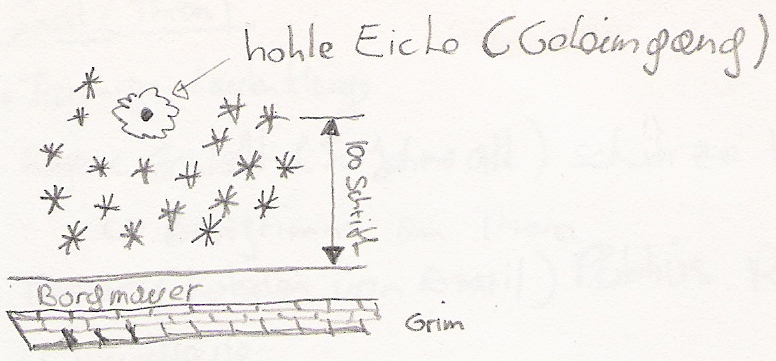 hohle Eiche (Geheimgang)
100 Schritt
Burgmauer
Grim